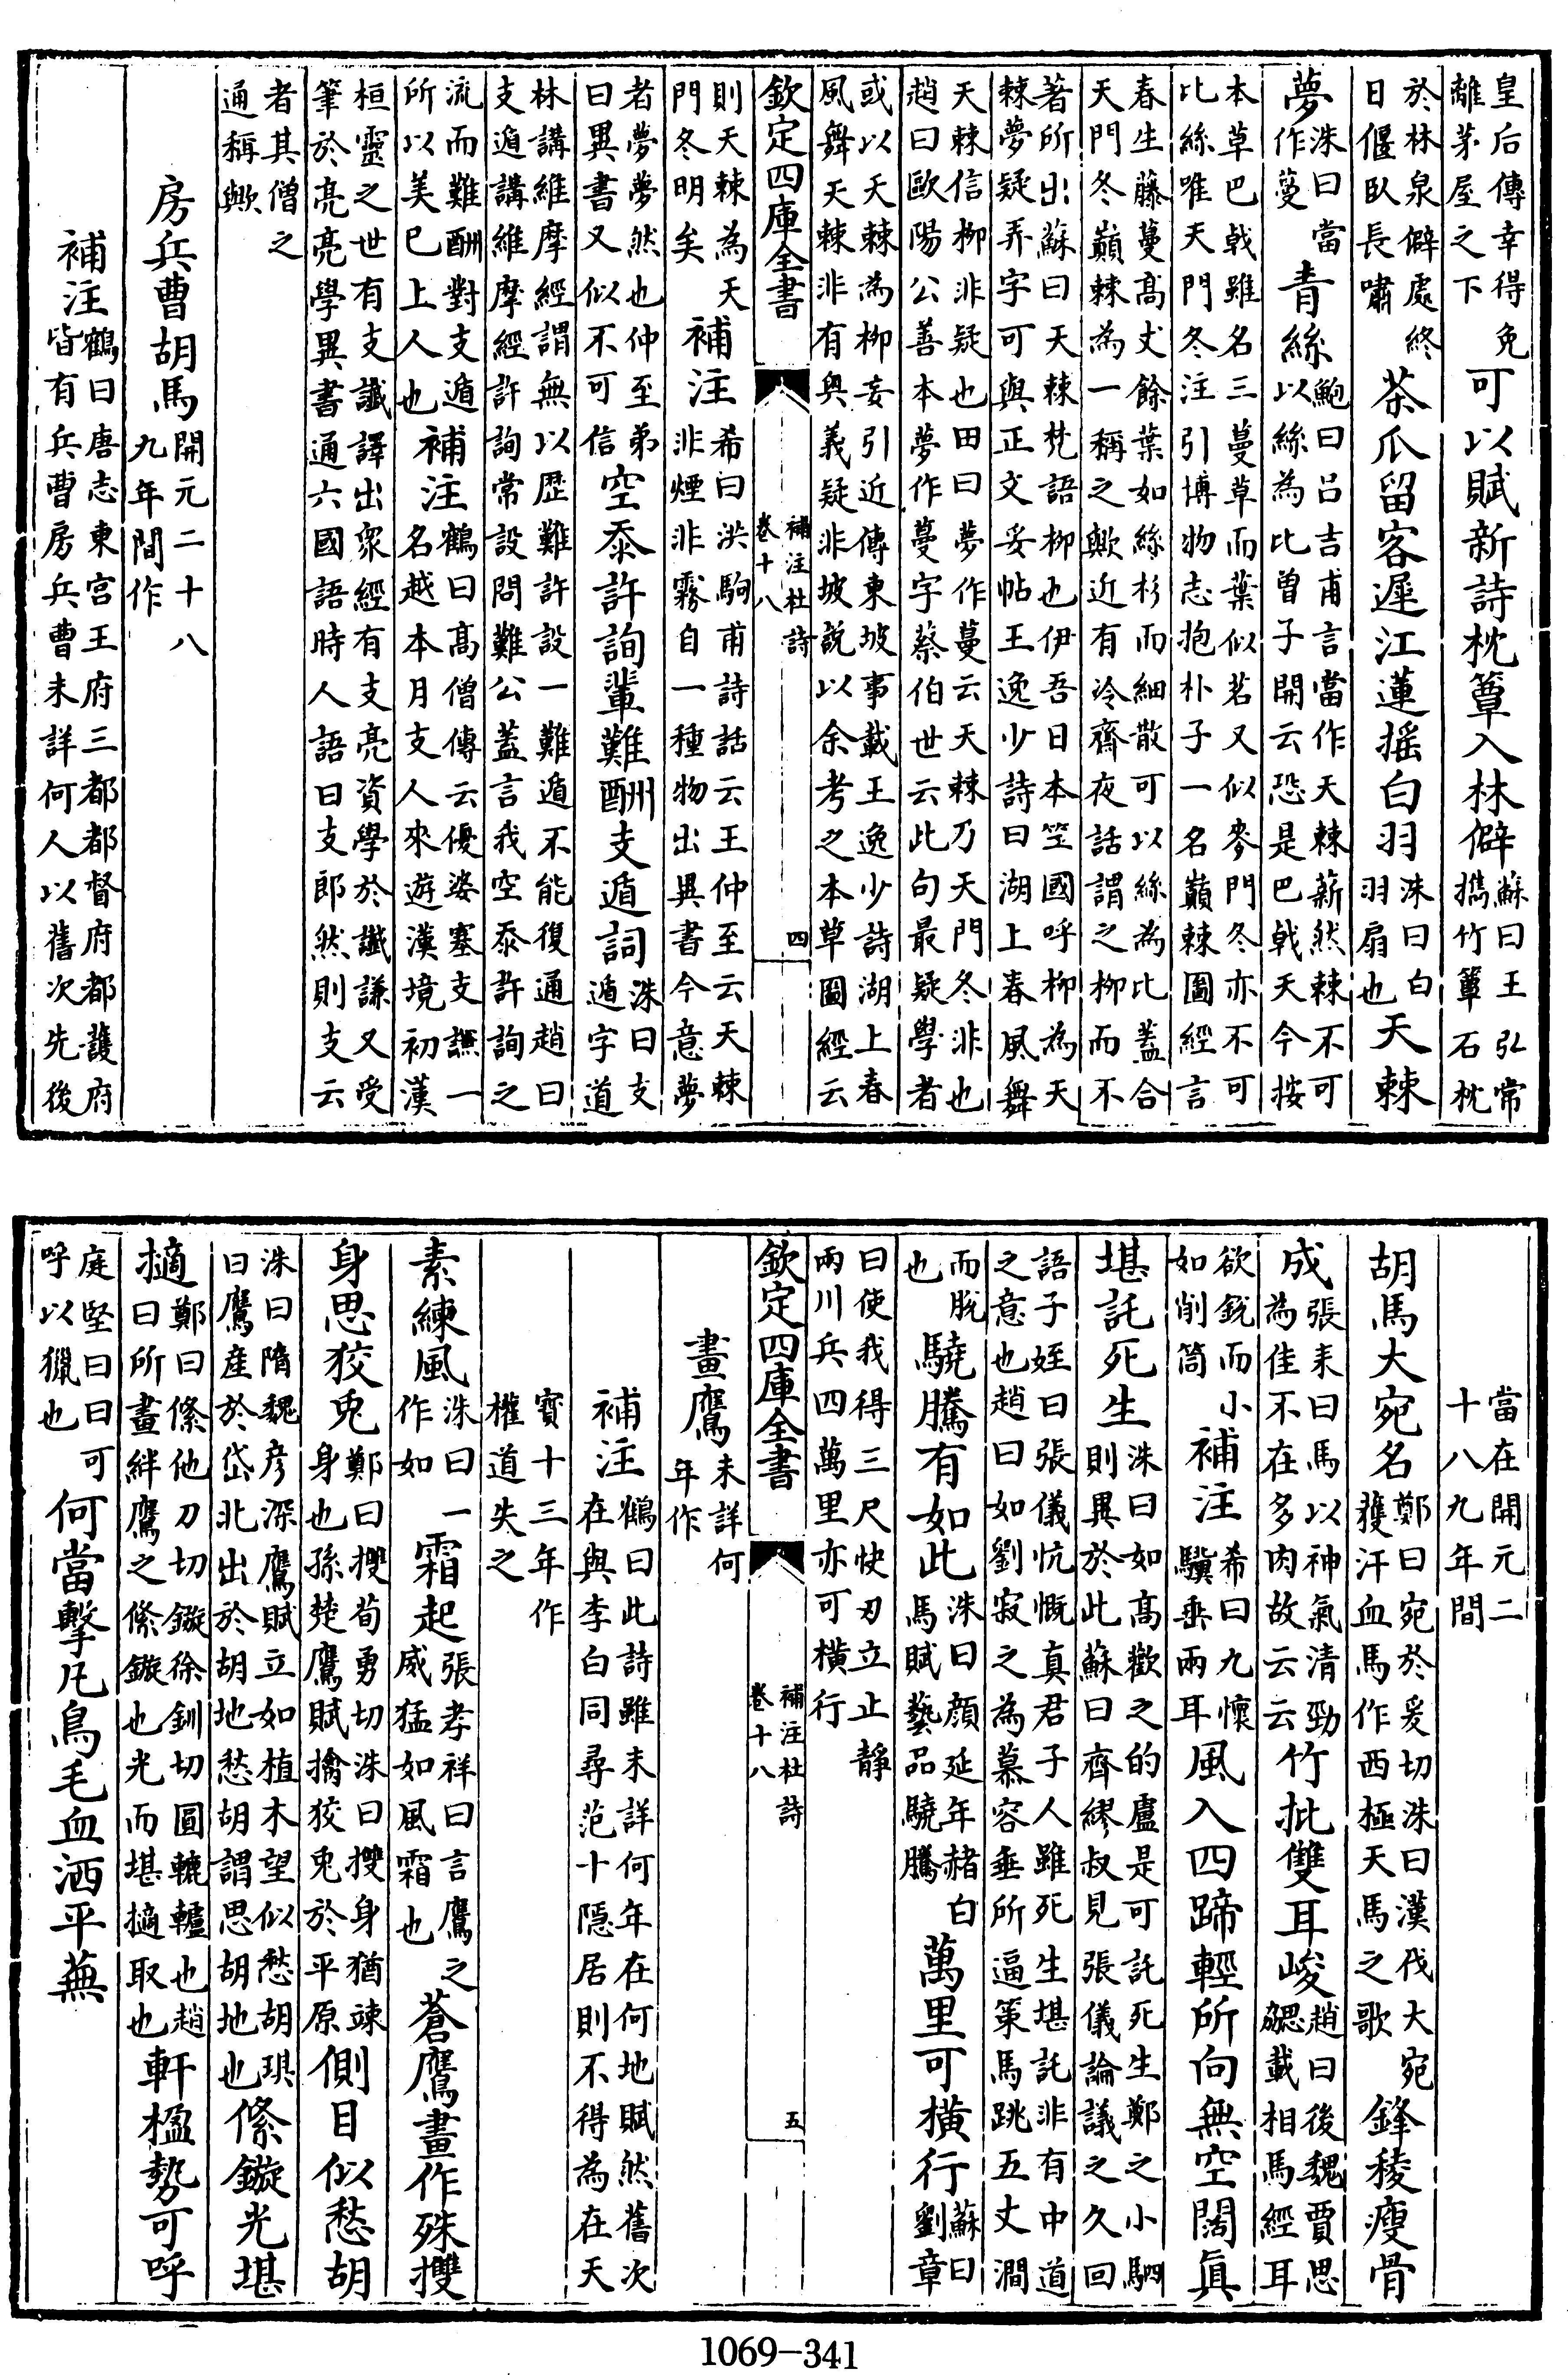 皇后傳幸得免離茅屋之下可以賦新詩枕簟入林僻蘇曰王弘常携竹簟石枕
於林泉僻處終日偃臥長嘯茶瓜留客遲江蓮摇白羽洙曰白羽扇也天棘
夢洙曰當作蔓青絲鮑曰吕吉甫言當作天棘薪然棘不可以絲為比曾子開云恐是巴戟天今按
本草巴戟雖名三蔓草而葉似茗又似麥門冬亦不可比絲唯天門冬注引博物志抱朴子一名巔棘圖經言
春生藤蔓髙丈餘葉如絲杉而細散可以絲為比蓋合天門冬巔棘為一稱之歟近有冷齊夜話謂之柳而不
著所出蘇曰天棘梵語柳也伊吾日本笁國呼柳為天棘夢疑弄字可與正文妥帖王逸少詩曰湖上春風舞
天棘信柳非疑也田曰夢作蔓云天棘乃天門冬非也趙曰歐陽公善本夢作蔓字蔡伯世云此句最疑學者
或以天棘為柳妄引近傳東坡事載王逸少詩湖上春風舞天棘非有與義疑非坡説以余考之本草圖經云
欽定四庫全書 補注杜詩 卷十八 四
則天棘為天門冬明矣補注希曰洪駒甫詩話云王仲至云天棘非煙非霧自一種物出異書今意夢
者夢夢然也仲至弟曰異書又似不可信空忝許詢輩難酬支遁詞洙曰支遁字道
林講維摩經謂無以歴難許設一難遁不能復通趙曰支遁講維摩經許詢常設問難公蓋言我空忝許詢之
流而難酬對支遁所以美巳上人也補注鶴曰髙僧傳云優婆塞支謙一名越本月支人來遊漢境初漢
桓靈之世有支讖譯出衆經有支亮資學於讖謙又受筆於亮亮學異書通六國語時人語曰支郎然則支云
者其僧之通稱歟
房兵曹胡馬開元二十八九年間作
補注鶴曰唐志東宫王府三都都督府都護府皆有兵曹房兵曹未詳何人以舊次先後
當在開元二十八九年間
胡馬大宛名鄭曰宛於爰切洙曰漢伐大宛獲汗血馬作西極天馬之歌鋒稜瘦骨
成張耒曰馬以神氣清勁為佳不在多肉故云云竹批雙耳峻趙曰後魏賈思勰載相馬經耳
欲鋭而小如削筒補注希曰九懷驥垂兩耳風入四蹄輕所向無空闊真
堪託死生洙曰如髙歡之的盧是可託死生鄭之小駟則異於此蘇曰齊繆叔見張儀論議之久回
語子姪曰張儀忼慨真君子人雖死生堪託非有中道之意也趙曰如劉寂之為慕容垂所逼策馬跳五丈澗
而脱也驍騰有如此洙曰顔延年赭白馬賦藝品驍騰萬里可横行蘇曰劉章
曰使我得三尺快刃立止靜兩川兵四萬里亦可横行
欽定四庫全書 補注杜詩 卷十八 五
畫鷹未詳何年作
補注鶴曰此詩雖未詳何年在何地賦然舊次在與李白同尋范十隱居則不得為在天
寳十三年作權道失之
素練風洙曰一作如霜起張孝祥曰言鷹之威猛如風霜也蒼鷹畫作殊㩳
身思狡兎鄭曰㩳荀勇切洙曰㩳身猶竦身也孫楚鷹賦擒狡兎於平原側目似愁胡
洙曰隋魏彦深鷹賦立如植木望似愁胡琪曰鷹産於岱北出於胡地愁胡謂思胡地也絛鏇光堪
擿鄭曰絛他刀切鏇徐釧切圓轆轤也趙曰所畫絆鷹之絛鏇也光而堪擿取也軒楹勢可呼
庭堅曰曰可呼以獵也何當擊凡鳥毛血洒平蕪
1069-341